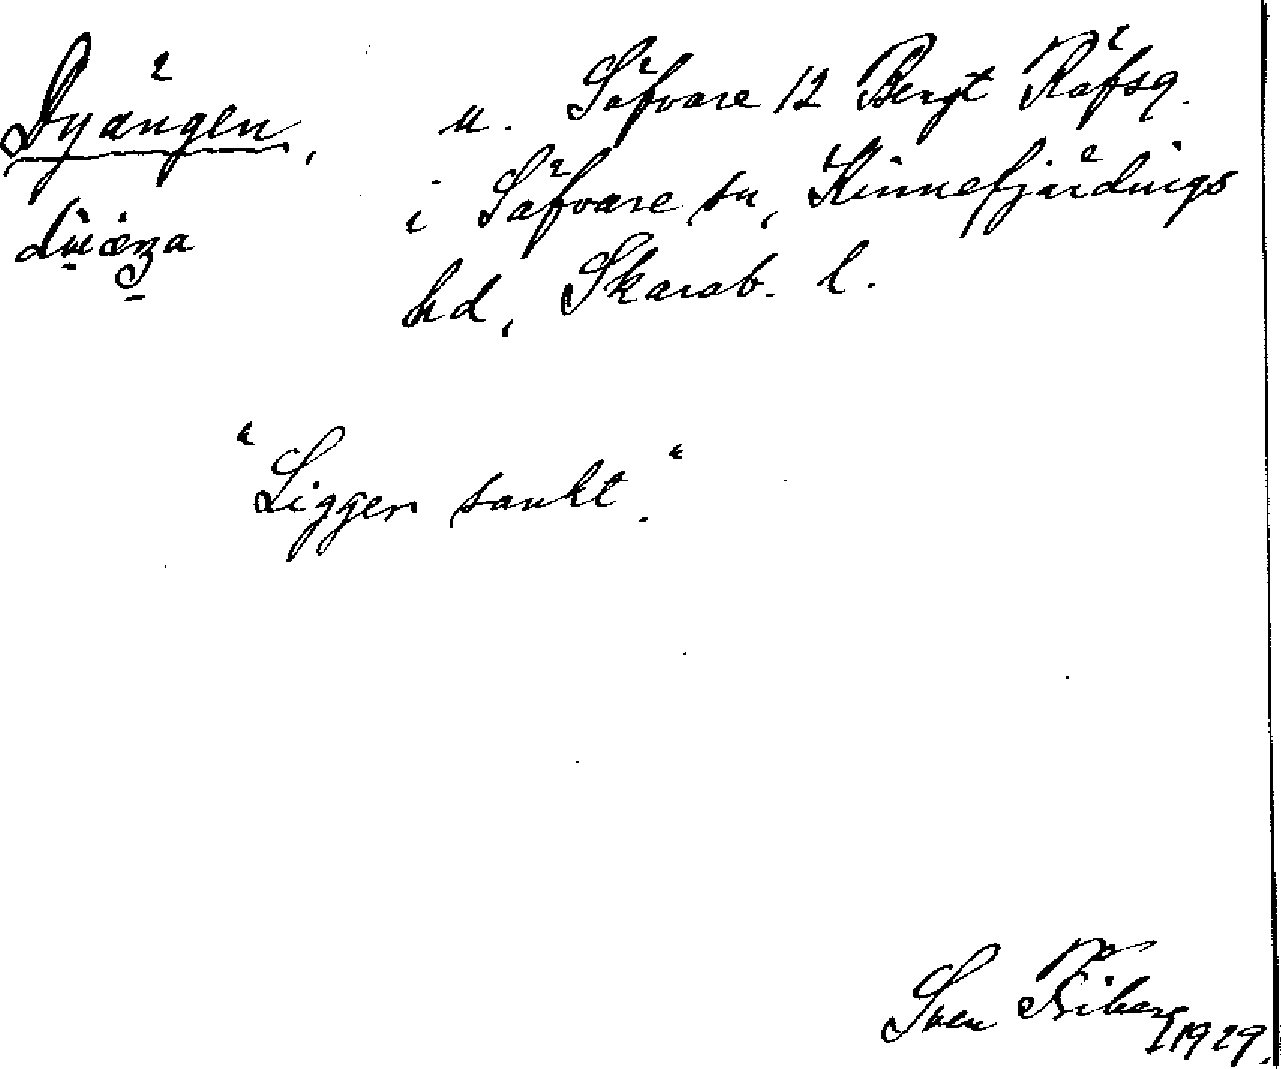 Dyängen, u. Säfvare 12 Bengt Räfsg.
i Säfvare sn, Kinnefjärdings
hd, Skarab. l.
"Ligger sankt."
Sven Friberg
1929.